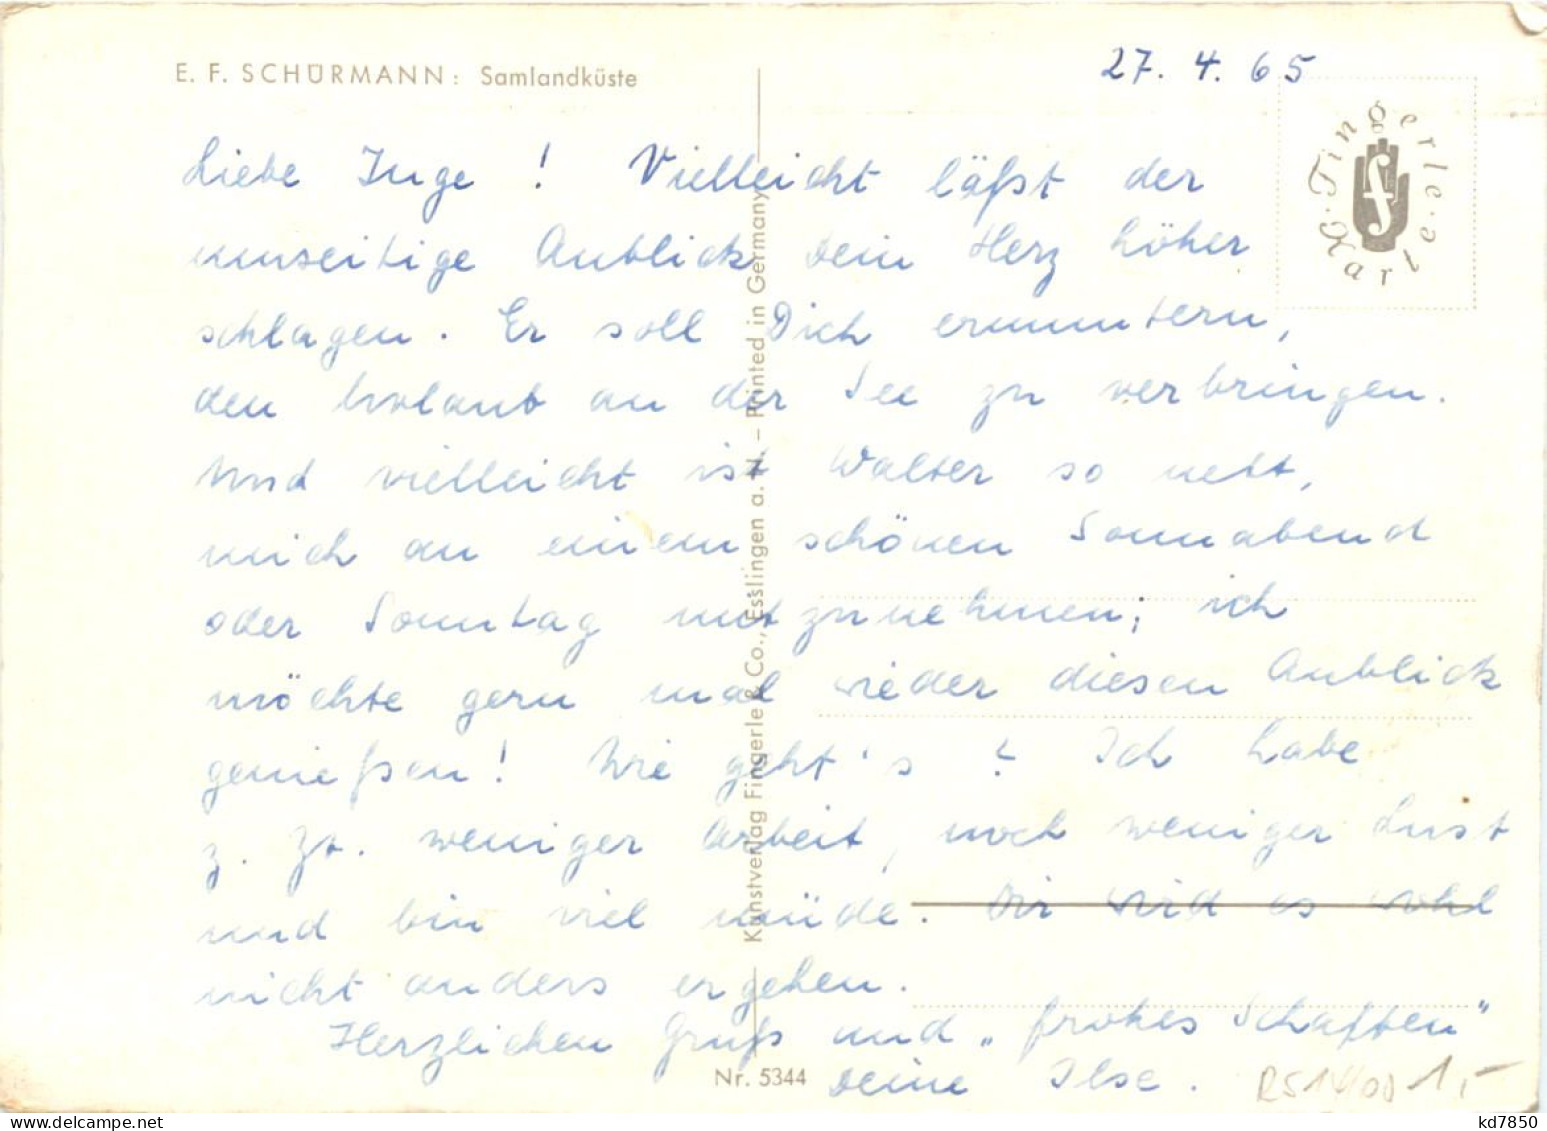 E. F. SCHÜRMANN: Samlandküste
27. 4. 65
Karl Fingerle
Liebe Inge! Vielleicht läßt der
umseitige Anblick Dein Herz höher
schlagen. Er soll Dich ermuntern,
den Urlaub an der See zu verbringen.
Und vielleicht ist Walter so nett,
mich an einem schönen Sonnabend
oder Sonntag mitzunehmen; ich
möchte gern mal wieder diesen Anblick
genießen! Wie geht's? Ich habe
z. Zt. weniger Arbeit, noch weniger Lust
und bin viel müde. Dir wird es wohl
nicht anders ergehen.
Herzlichen Gruß und „frohes Schaffen"
Deine Ilse.
Kunstverlag Fingerle & Co., Esslingen a. N. – Printed in Germany
Nr. 5344
1,-
kd7850